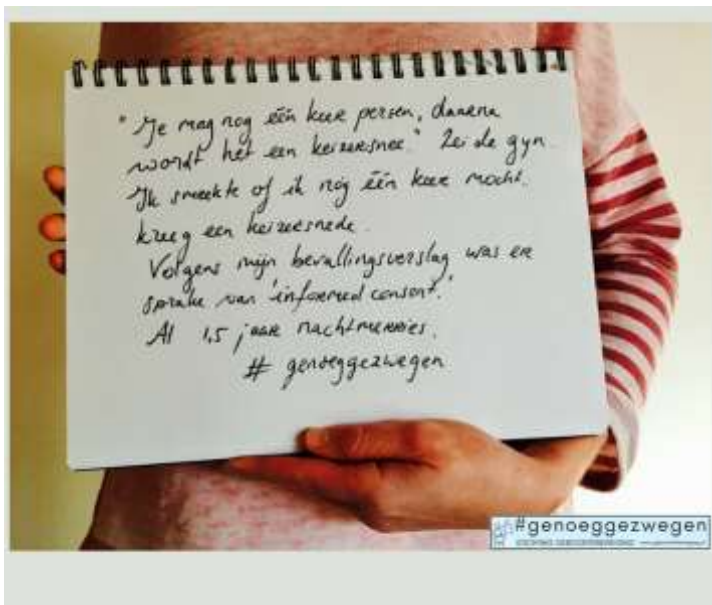 "Je mag nog één keer persen, daarna
wordt het een keizersnee." Zei de gyn.
Ik smeekte of ik nog één keer mocht.
kreeg een keizersnede.
Volgens mijn bevallingsverslag was er
sprake van 'informed consent.'
Al 1,5 jaar nachtmerries.
# genoeggezwegen
#genoeggezwegen